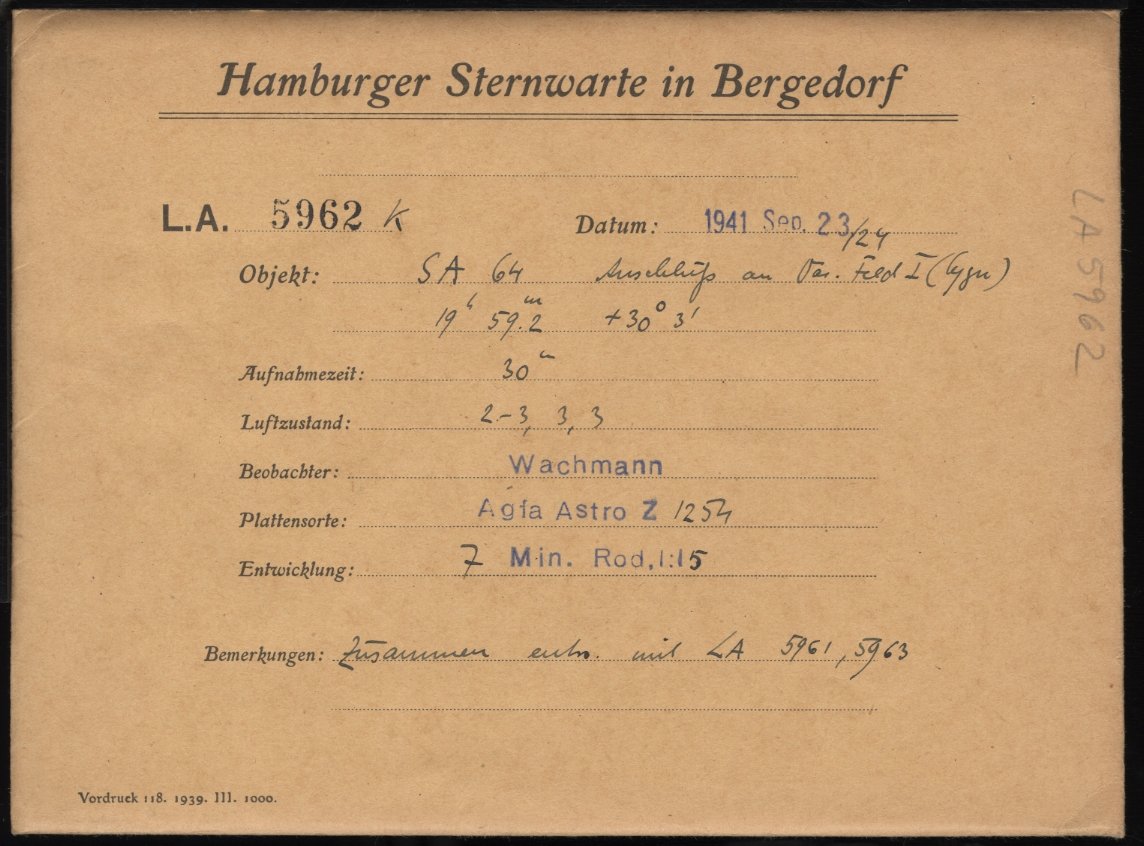 Hamburger Sternwarte in Bergedorf
L.A. 5962 K Datum: 1941 Sep. 23/24
Objekt: SA 64 Anschluß an Var. Feld I (Cygn)
19ʰ 59.2ᵐ +30° 3'
Aufnahmezeit: 30ᵐ
Luftzustand: 2-3, 3, 3
Beobachter: Wachmann
Plattensorte: Agfa Astro Z 1254
Entwicklung: 7 Min. Rod. 1:15
Bemerkungen: Zusammen entw. mit LA 5961, 5963
Vordruck 118. 1939. III. 1000.
LA 5962